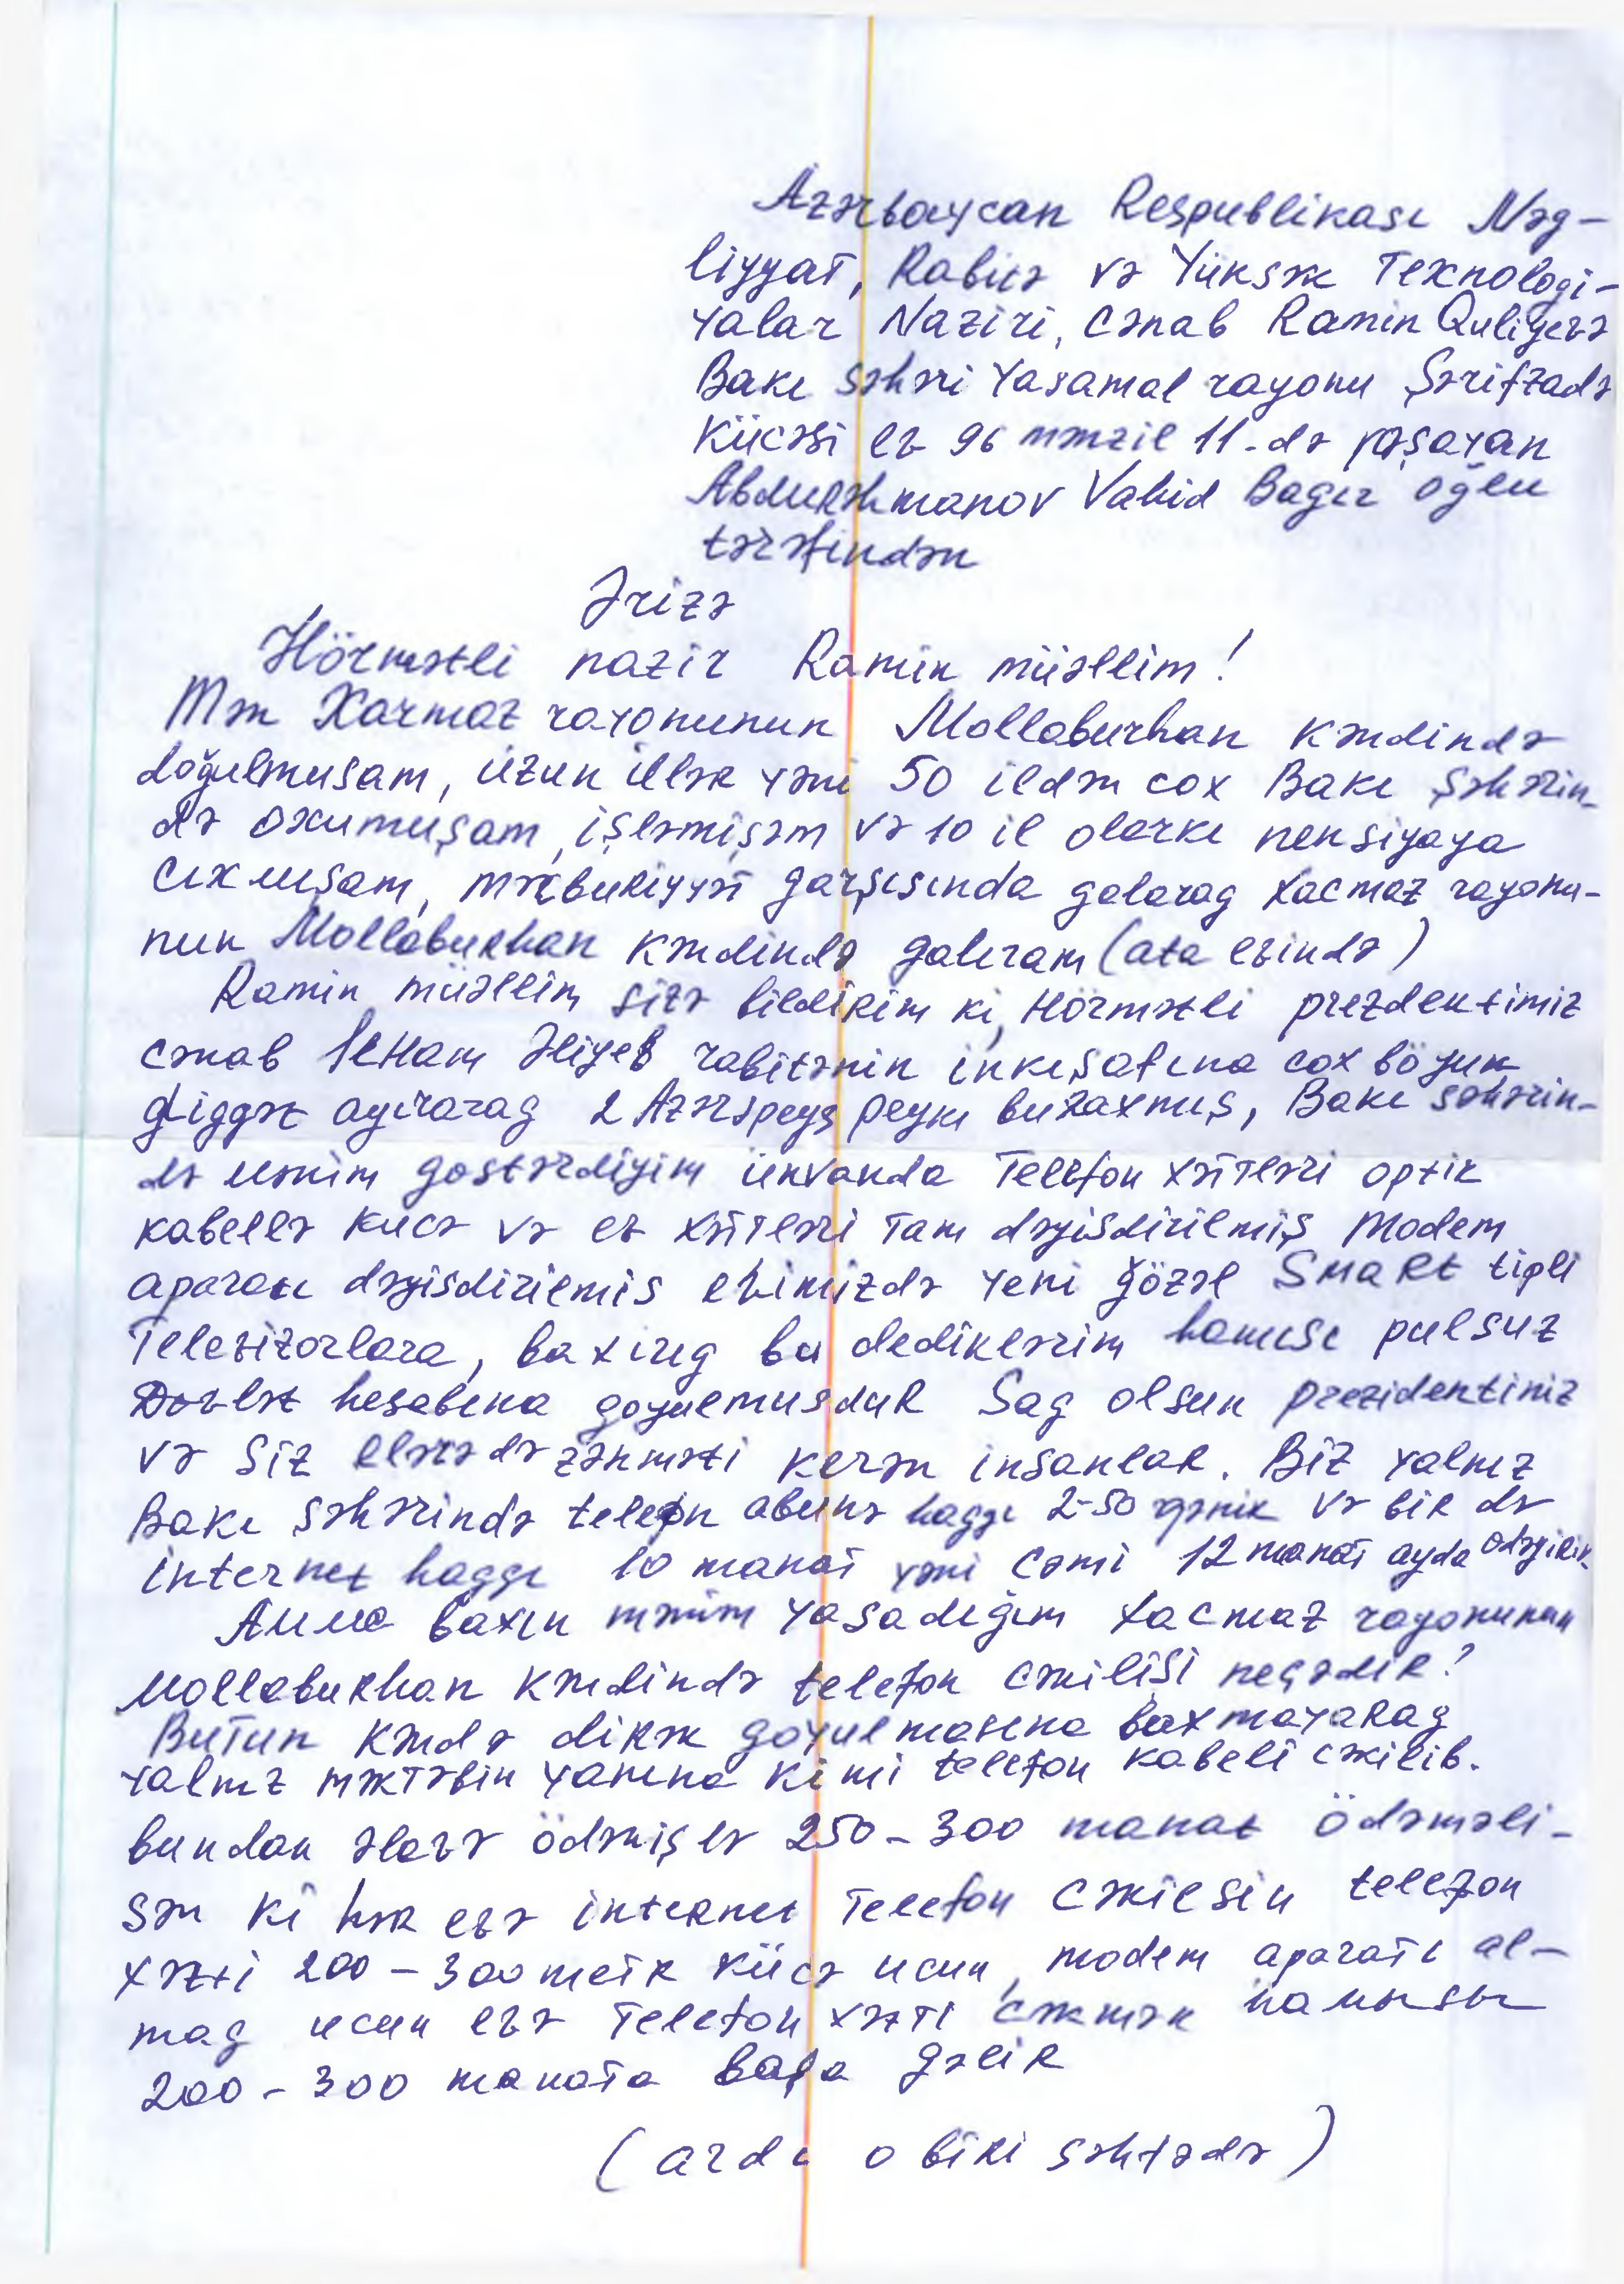 Azərbaycan Respublikası Nəg-
liyyat, Rabitə və Yüksək Texnologi-
yalar Naziri, Cənab Ramin Quliyevə
Bakı Səhəri Yasamal rayonu Şərifzadə
Küçəsi ev 96 mənzil 11-də yaşayan
Abdurəhmanov Vahid Bagır oğlu
tərəfindən
Ərizə
Hörmətli nazir Ramin müəllim!
Mən Xaçmaz rayonunun Mollaburhan kəndində
doğulmuşam, uzun illər yəni 50 ildən cox Bakı Şəhərin-
də oxumuşam, işləmişəm və 10 il olarkı pensiyaya
cıxmışam, məcburiyyət garşısında galarag Xacmaz rayonu-
nun Mollaburhan kəndində galıram (ata evində)
Ramin müəllim sizə bildirim ki, Hörmətli prezdentimiz
cənab İlham Əliyev rabitənin inkişafına cox böyuk
diggət ayırarag 2 Azərspeys peyki buraxmış, Bakı səhərin-
də mənim gostərdiyim ünvanda Telefon xətləri optik
kabellə kucə və ev xətləri tam dəyisdirilmiş Modem
aparatı dəyisdirilmis evimizdə yeni gözəl Smart tipli
Televizorlara, baxırıg bu dediklərim hamısı pulsuz
Dovlət hesabına goyulmusdur Sag olsun prezidentiniz
və Siz elərədə zəhməti kecən insanlar. Biz yalnız
Bakı Səhərində telefon abunə haggı 2-50 qəpik və bir də
internet haggı 10 manat yəni cəmi 12 manat ayda ödəyirik
Amma baxın mənim yasadığım Xacmaz rayonunun
Mollaburhan kəndində telefon cəkilişi necədir?
Butun kəndə dirək goyulmasına baxmayarag
yalnız məktəbin yanına kimi telefon kabeli cəkilib.
bundan əlavə ödəniş evə 250-300 manat ödəməli-
sən ki hər evə internet Telefon cəkilsin telefon
xətti 200-300 metr kücə ucun, modem aparatı al-
mag ucun evə Telefon xətti cəkmək hamısı
200-300 manata başa gəlir
(ardı o biri səhfədə)